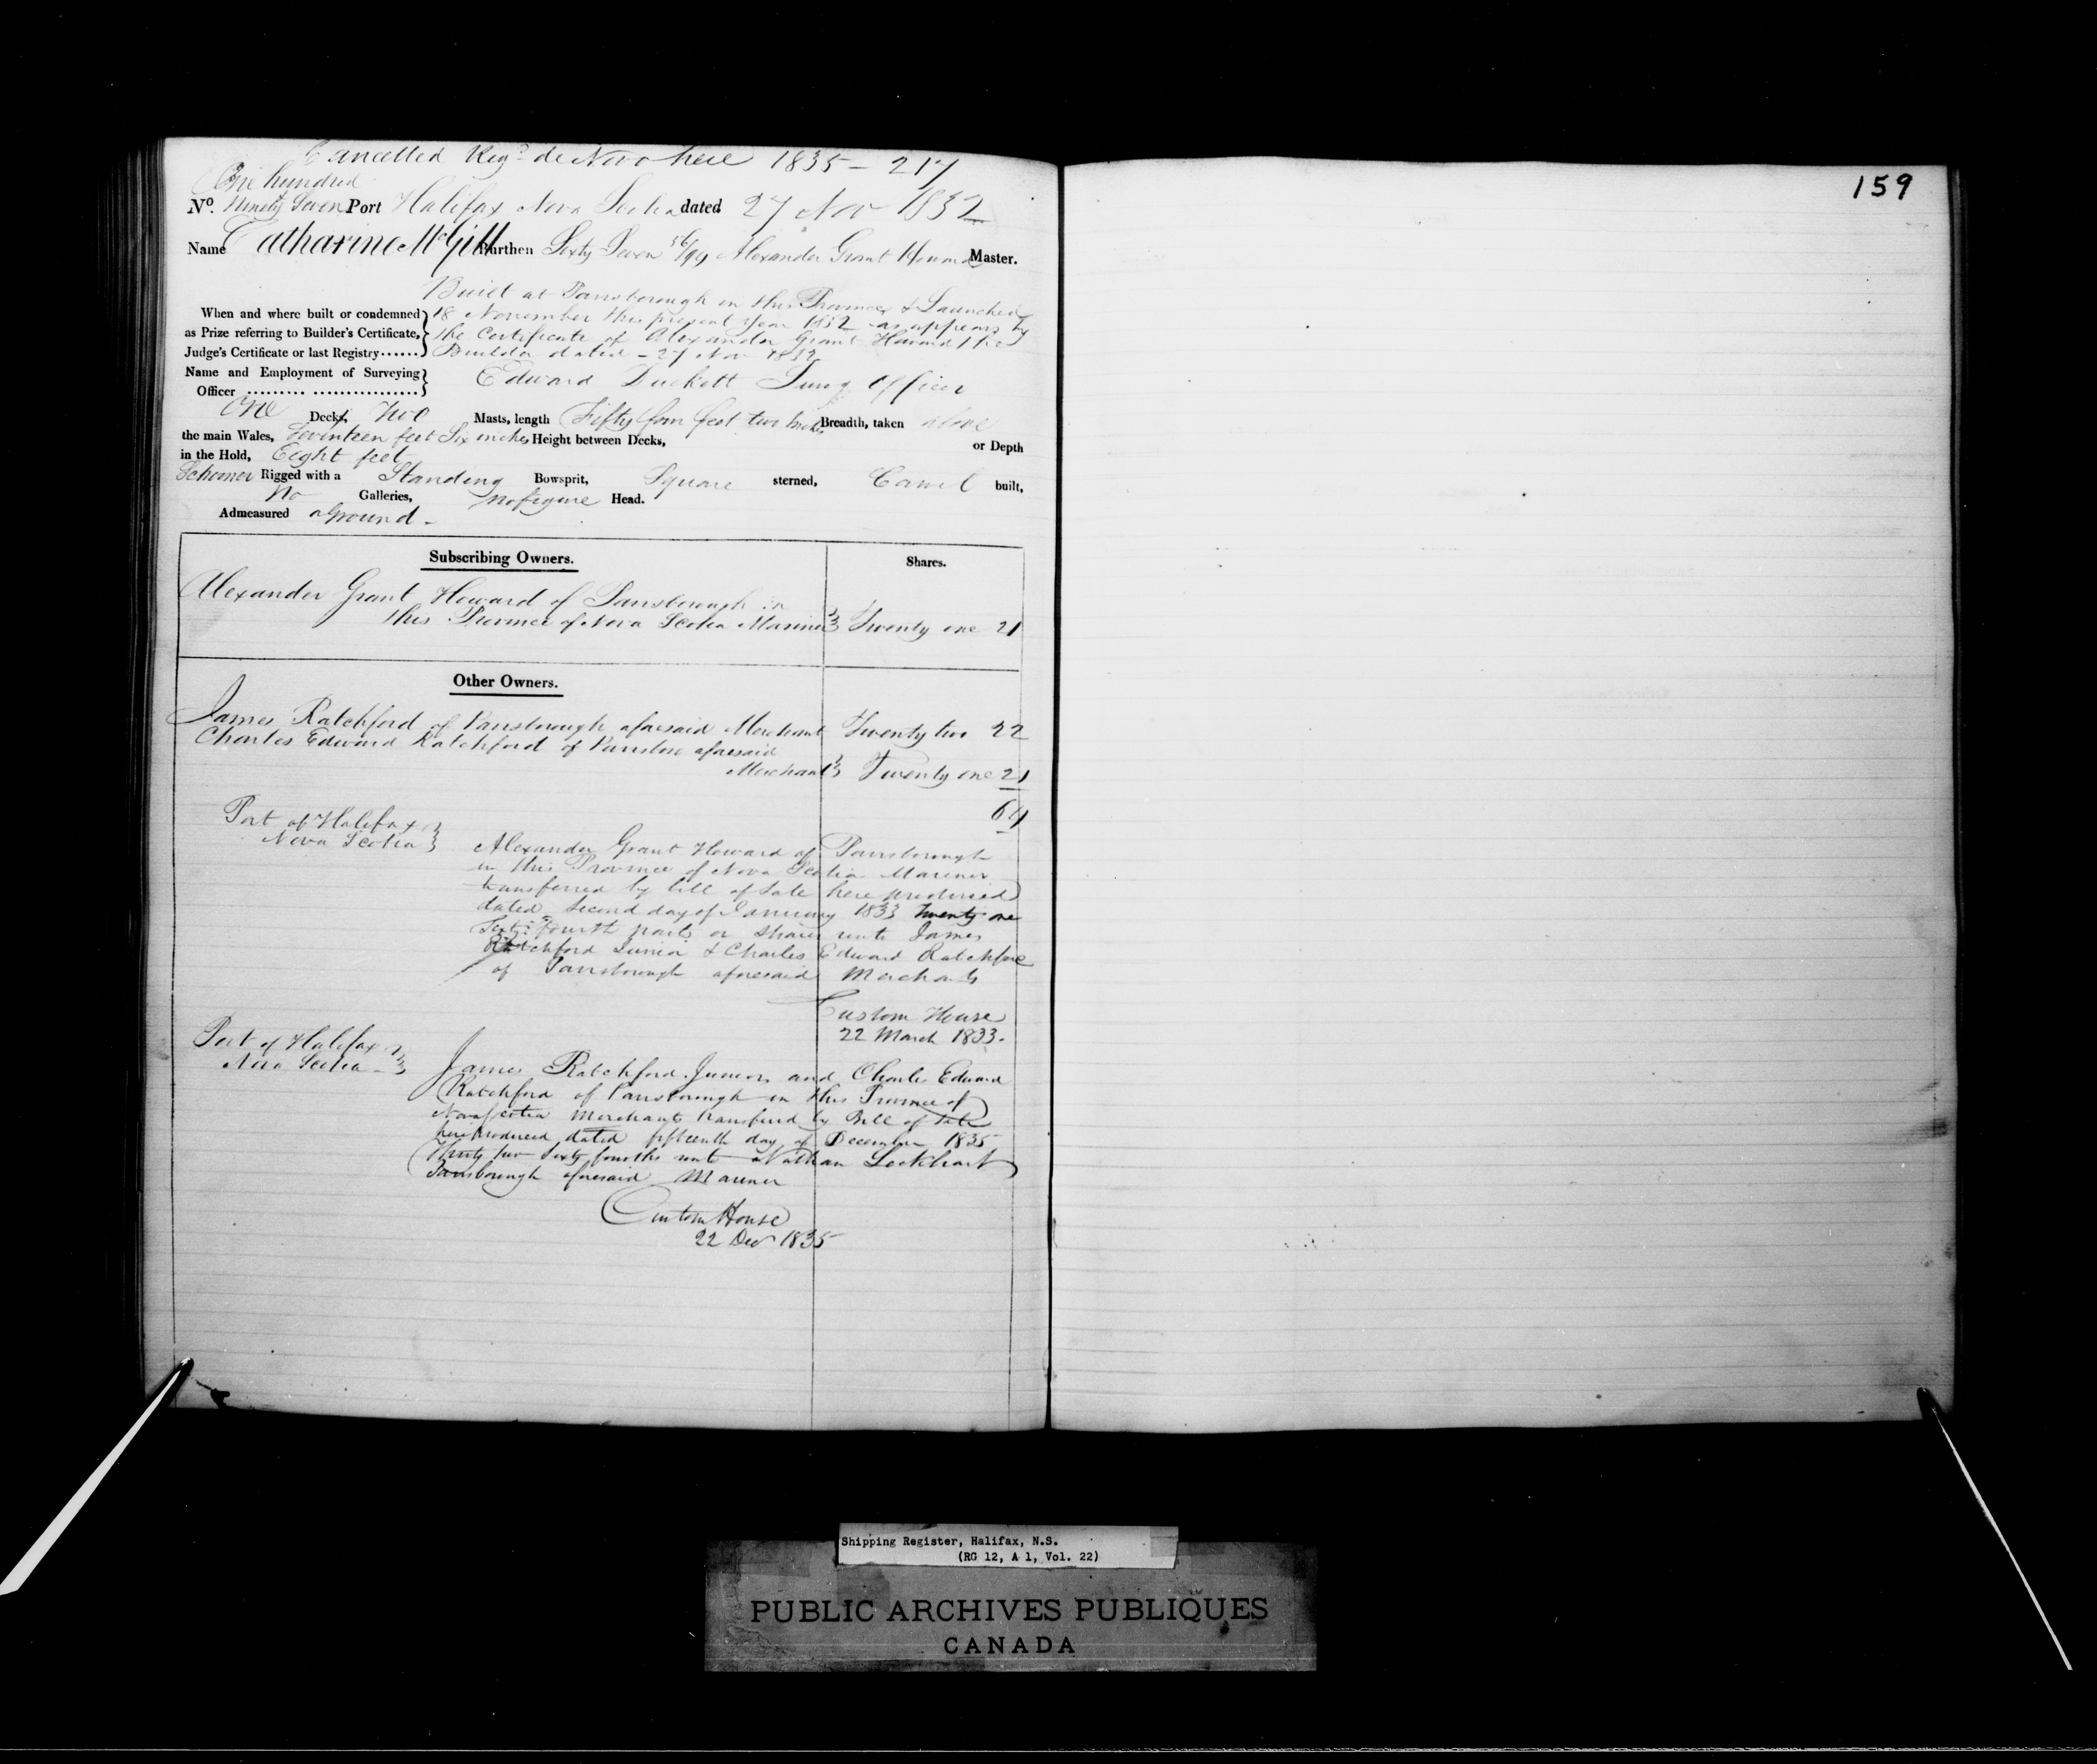 Cancelled Reg.d de Novo here 1835 - 217
One hundred
No. Ninety Seven Port Halifax Nova Scotia dated 27 Nov 1832
Name Catharine McGill Burthen Sixty Seven 56/99 Alexander Grant Howard Master.
Built at Parrsborough in this Province & Launched
When and where built or condemned 18 November this present year 1832 as appears by
as Prize referring to Builder's Certificate, the Certificate of Alexander Grant Howard the
Judge's Certificate or last Registry...... Builder dated - 27 Nov 1832
Name and Employment of Surveying
Officer ......... ................ Edward Duckett Surv.g Officer
One Decks, Two Masts, length Fifty four feet two inches Breadth, taken above
the main Wales, Seventeen feet Six inches Height between Decks, or Depth
in the Hold, Eight feet
Schooner Rigged with a Standing Bowsprit, Square sterned, Carvel built,
No Galleries, no figure Head.
Admeasured aground -
Subscribing Owners. Shares.
Alexander Grant Howard of Parrsborough in
this Province of Nova Scotia Mariner Twenty one 21
Other Owners.
James Ratchford of Parrsborough aforesaid Merchant Twenty two 22
Charles Edward Ratchford of Parrsboro aforesaid
Merchant Twenty one 21
64
Port of Halifax
Nova Scotia
Alexander Grant Howard of Parrsborough
in this Province of Nova Scotia Mariner
transferred by bill of Sale here produced
dated Second day of January 1833 Twenty one
Sixty fourth parts or shares unto James
Ratchford Junior & Charles Edward Ratchford
of Parrsborough aforesaid Merchants
Custom House
22 March 1833.
Port of Halifax
Nova Scotia
James Ratchford Junior and Charles Edward
Ratchford of Parrsborough in this Province of
Nova Scotia Merchants transferred by Bill of Sale
here produced dated fifteenth day of December 1835
Thirty two Sixty fourths unto Nathan Lockhart
Parrsborough aforesaid Mariner
Custom House
22 Decr 1835
159
Shipping Register, Halifax, N.S.
(RG 12, A 1, Vol. 22)
PUBLIC ARCHIVES PUBLIQUES
CANADA